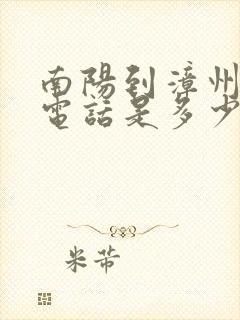 南陽到漳州
電話是多少
米芾